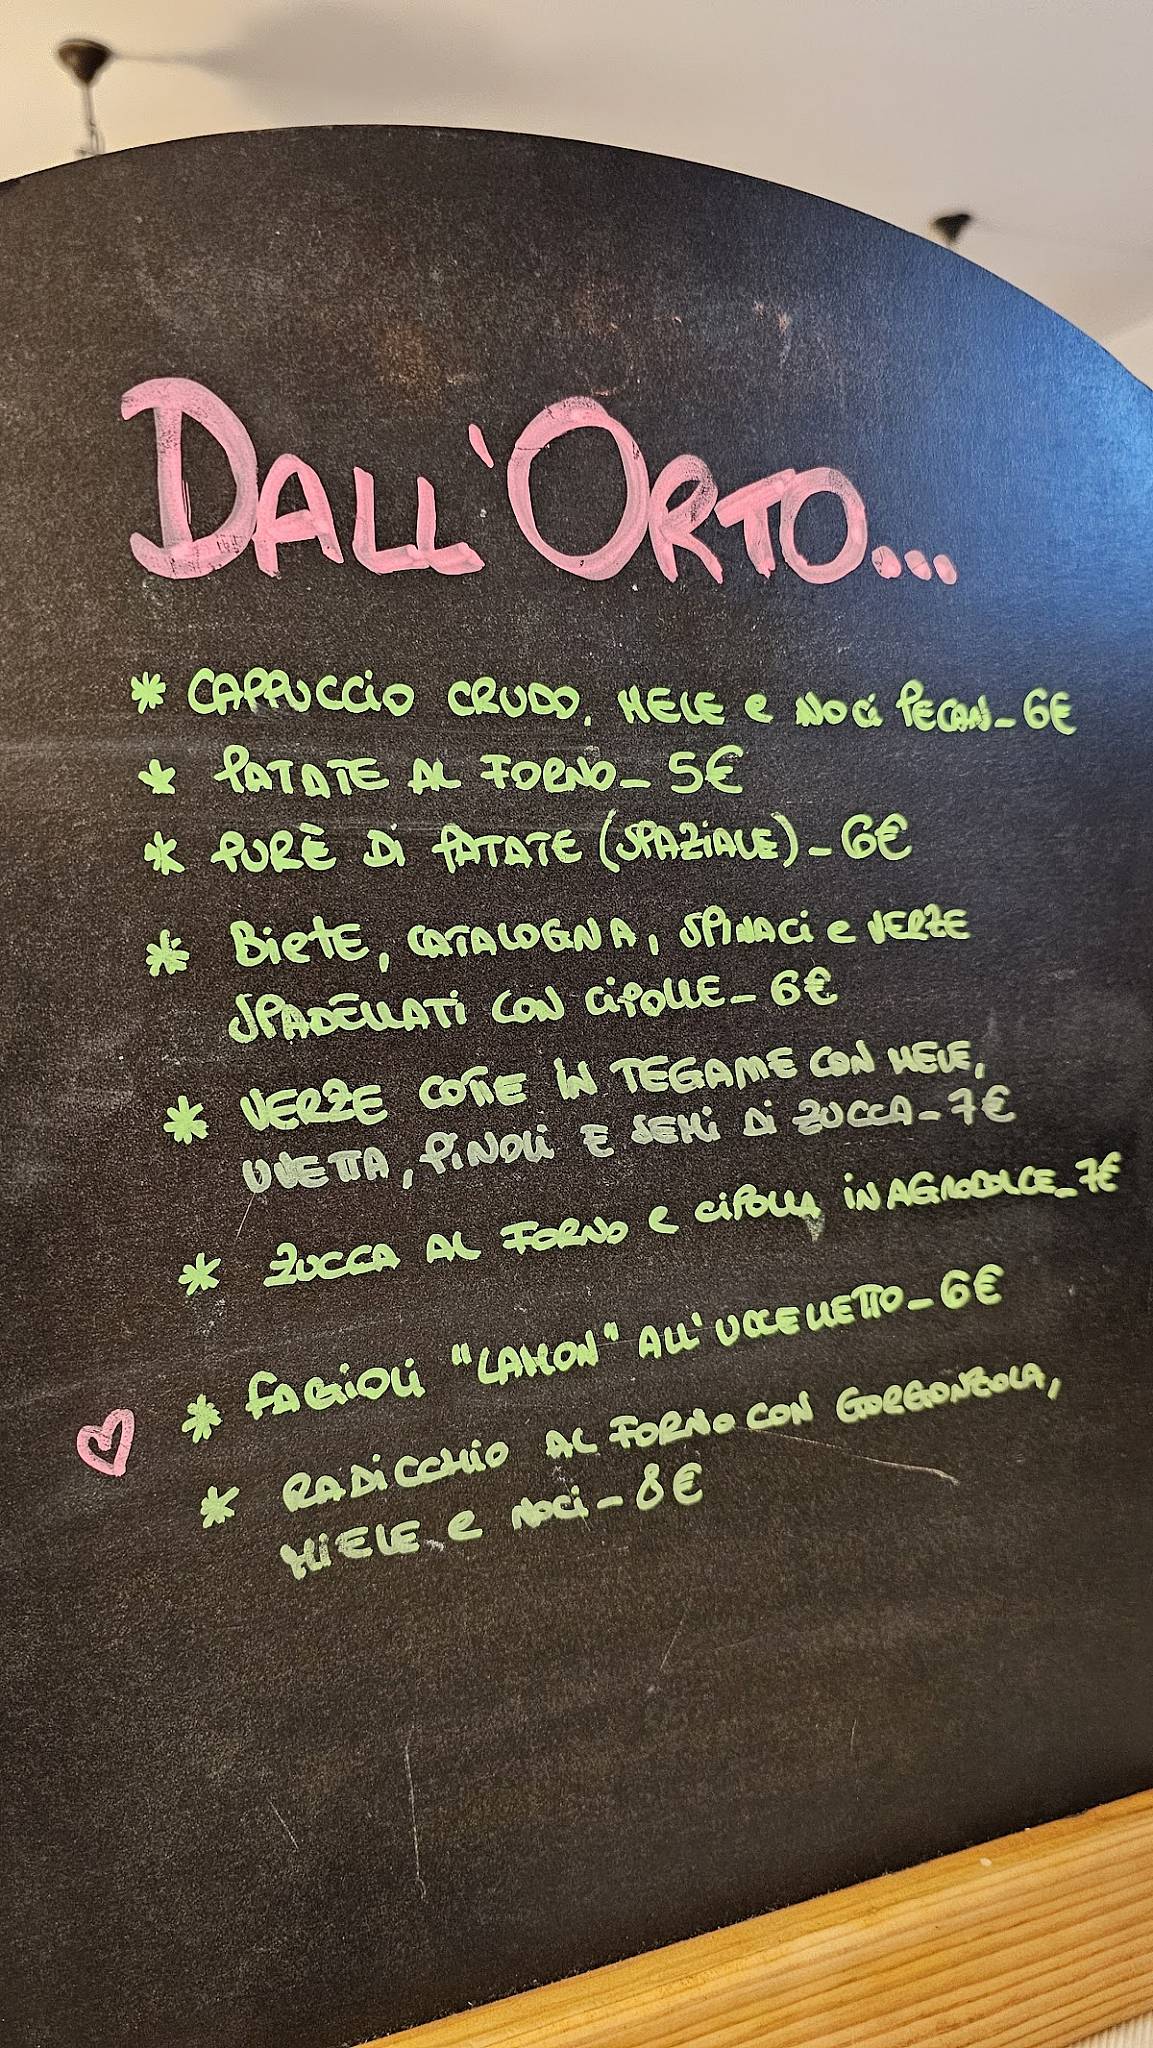 DALL'ORTO...
* CAPPUCCIO CRUDO, MELE e NOCI PECAN - 6€
* PATATE AL FORNO - 5€
* PURÈ DI PATATE (SPAZIALE) - 6€
* BIETE, CATALOGNA, SPINACI e VERZE
SPADELLATI CON CIPOLLE - 6€
* VERZE COTTE IN TEGAME CON MELE,
UVETTA, PINOLI E SEMI DI ZUCCA - 7€
* ZUCCA AL FORNO e CIPOLLA IN AGRODOLCE - 7€
* FAGIOLI "LAMON" ALL'UCCELLETTO - 6€
* RADICCHIO AL FORNO CON GORGONZOLA,
MIELE e NOCI - 8€